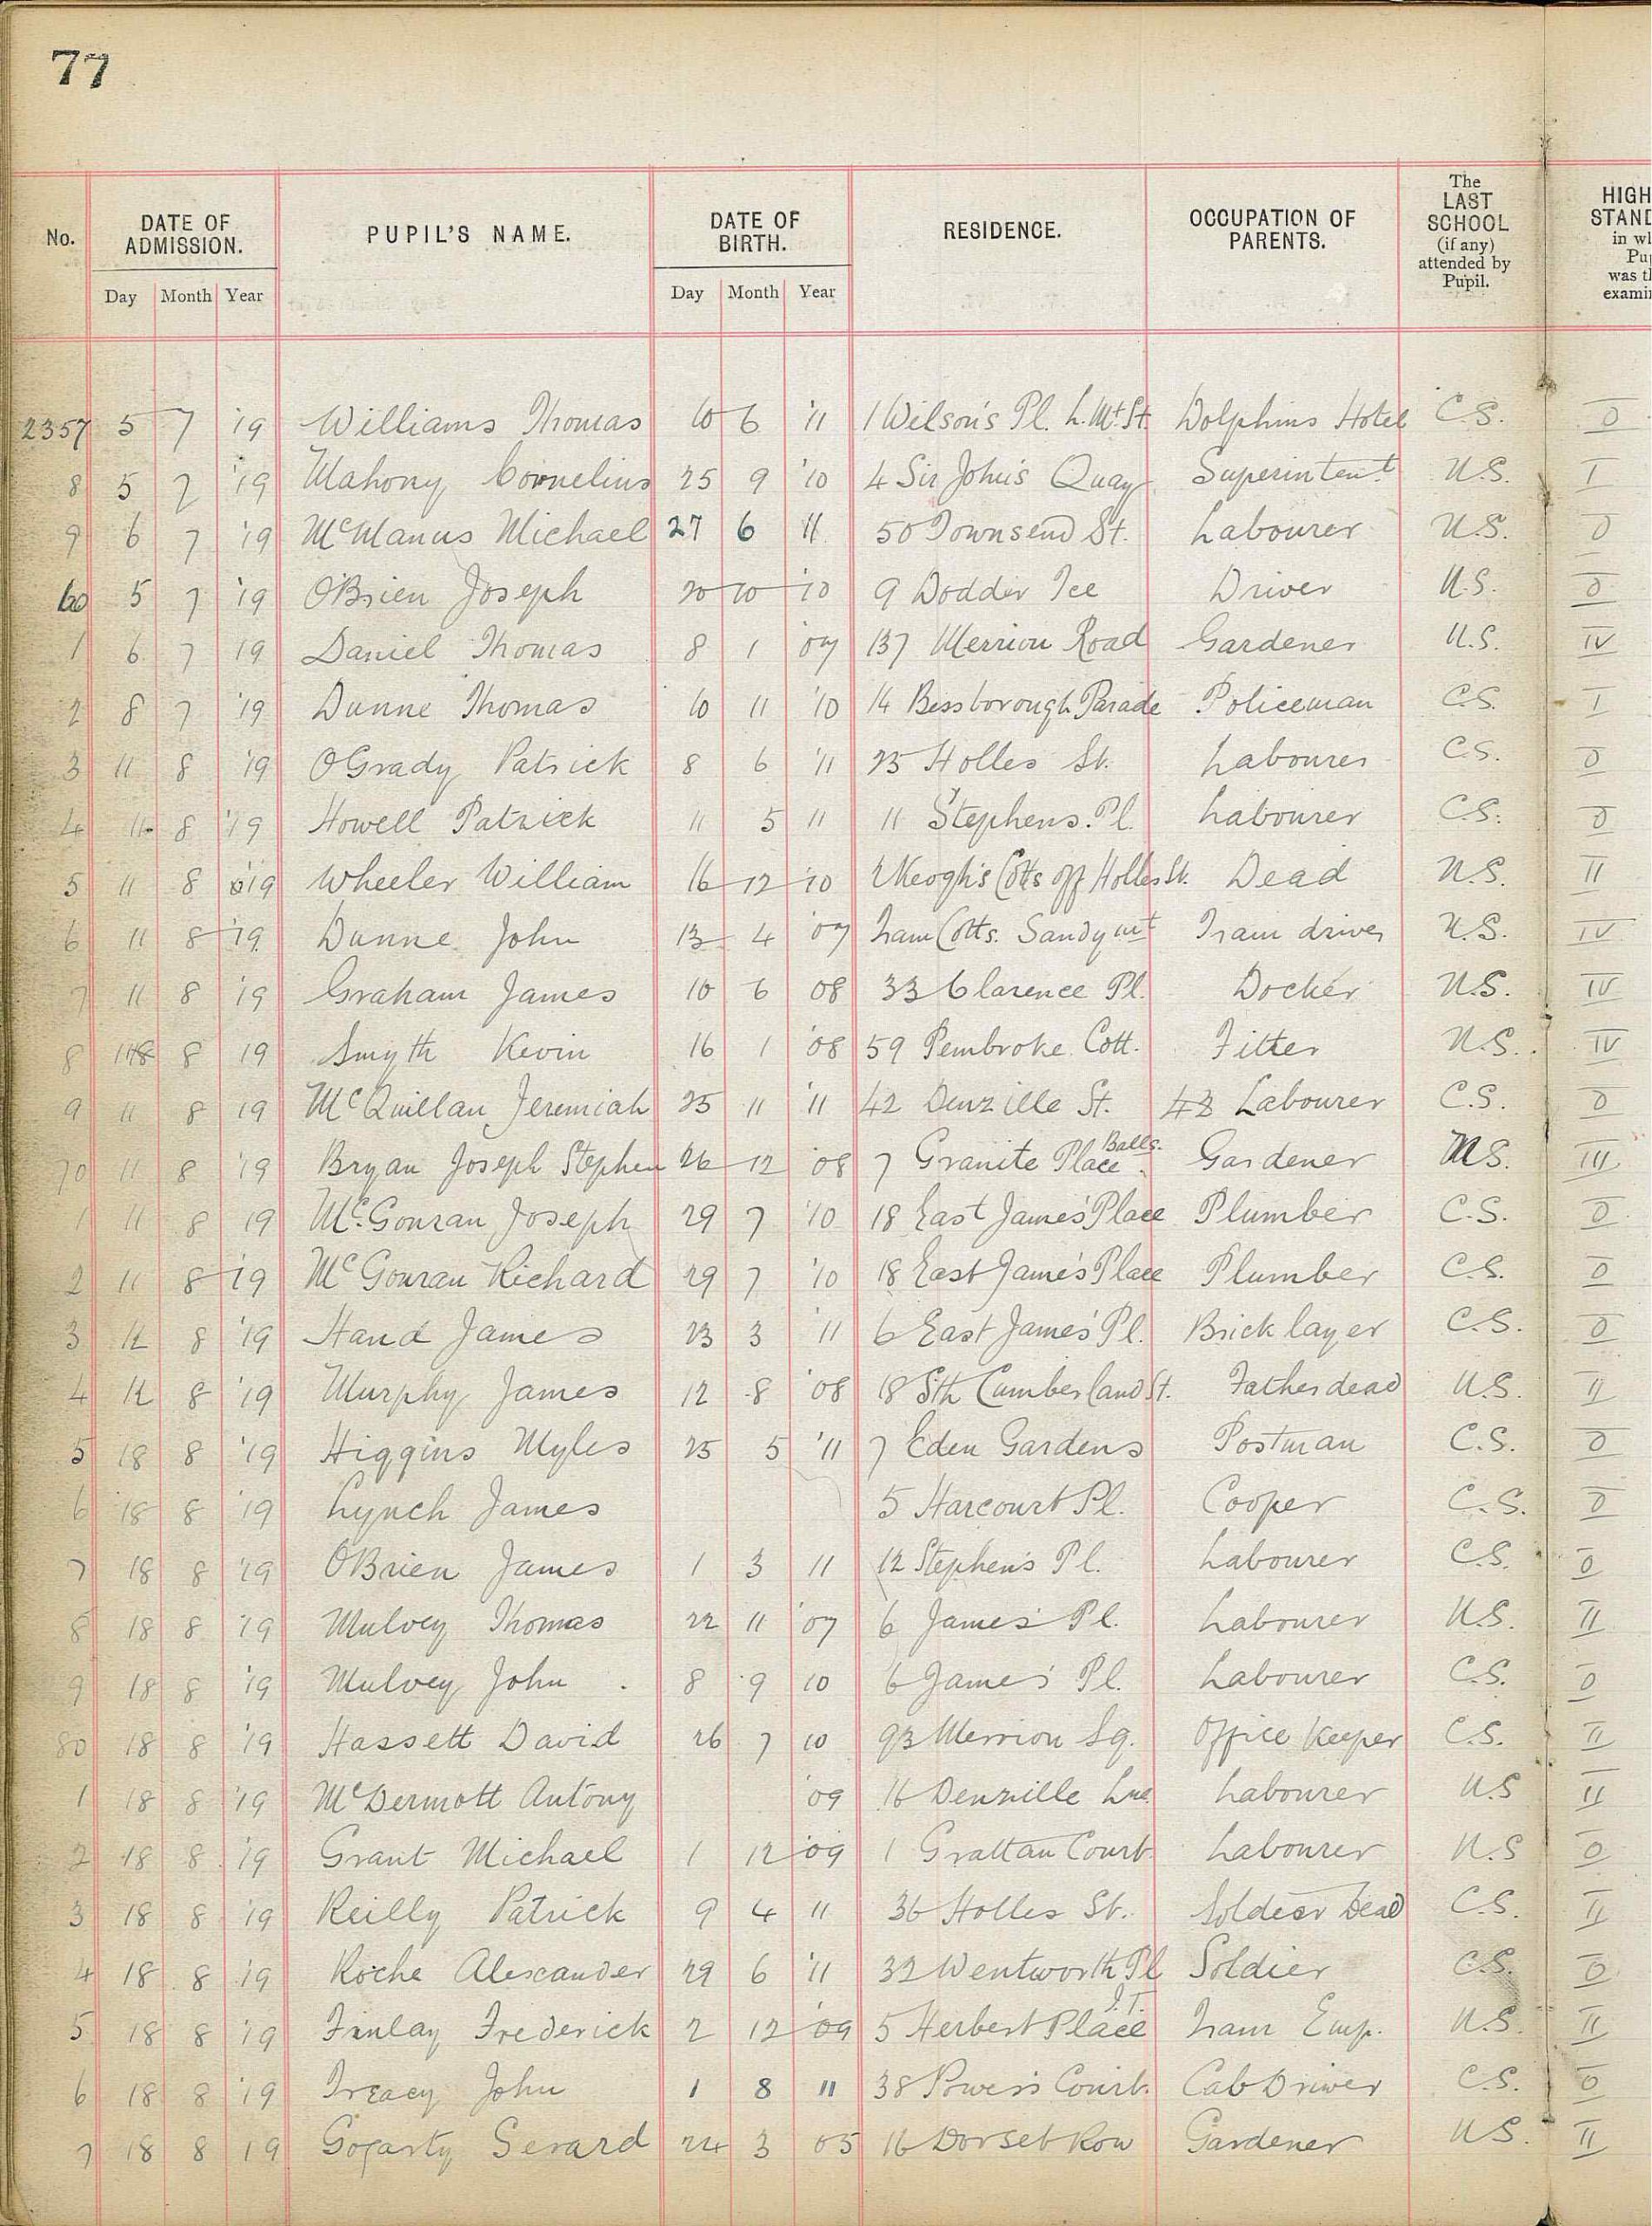 77
No. DATE OF ADMISSION. PUPIL'S NAME. DATE OF BIRTH. RESIDENCE. OCCUPATION OF PARENTS. The LAST SCHOOL (if any) attended by Pupil. HIGH STAND in wh Pu was t exami
Day Month Year Day Month Year
2357 5 7 '19 Williams Thomas 10 6 '11 1 Wilson's Pl. L. Mt. St. Dolphins Hotel C.S. 0
8 5 7 '19 Mahony Cornelius 25 9 '10 4 Sir John's Quay Superintent N.S. I
9 6 7 '19 McManus Michael 27 6 11 50 Townsend St. Labourer N.S. 0
60 5 7 '19 O'Brien Joseph 20 10 '10 9 Dodder Tce Driver N.S. 0
1 6 7 '19 Daniel Thomas 8 1 '07 137 Merrion Road Gardener N.S. IV
2 8 7 '19 Dunne Thomas 10 11 '10 14 Bessborough Parade Policeman C.S. I
3 11 8 '19 O'Grady Patrick 8 6 '11 25 Holles St. Labourer C.S. 0
4 11 8 '19 Howell Patrick 11 5 11 11 Stephens. Pl. Labourer C.S. 0
5 11 8 '19 Wheeler William 16 12 '10 2 Keogh's Cotts off Holles St. Dead N.S. II
6 11 8 '19 Dunne John 13 4 '07 Tram Cotts. Sandymt Tram driver N.S. IV
7 11 8 '19 Graham James 10 6 08 33 Clarence Pl. Docker N.S. IV
8 11 8 19 Smyth Kevin 16 1 '08 59 Pembroke Cott. Fitter N.S. IV
9 11 8 19 McQuillan Jeremiah 25 11 '11 42 Denzille St. 42 Labourer C.S. 0
70 11 8 '19 Bryan Joseph Stephen 26 12 '08 7 Granite Place Balls. Gardener M.S. III
1 11 8 19 McGouran Joseph 29 7 '10 18 East James' Place Plumber C.S. 0
2 11 8 '19 McGouran Richard 29 7 '10 18 East James' Place Plumber C.S. 0
3 12 8 '19 Hand James 23 3 '11 6 East James' Pl. Brick layer C.S. 0
4 12 8 '19 Murphy James 12 8 '08 18 Sth Cumberland St. Father dead N.S. II
5 18 8 '19 Higgins Myles 25 5 '11 7 Eden Gardens Postman C.S. 0
6 18 8 '19 Lynch James 5 Harcourt Pl. Cooper C.S. 0
7 18 8 '19 O'Brien James 1 3 11 12 Stephen's Pl. Labourer C.S. 0
8 18 8 '19 Mulvey Thomas 22 11 '07 6 James' Pl. Labourer N.S. II
9 18 8 '19 Mulvey John 8 9 10 6 James' Pl. Labourer C.S. 0
80 18 8 '19 Hassett David 26 7 10 93 Merrion Sq. Office Keeper C.S. II
1 18 8 '19 McDermott Antony '09 16 Denzille Lne. Labourer N.S II
2 18 8 '19 Grant Michael 1 12 '09 1 Grattan Court. Labourer N.S 0
3 18 8 '19 Reilly Patrick 9 4 11 36 Holles St. Soldier Dead C.S. II
4 18 8 19 Roche Alexander 29 6 '11 32 Wentworth Pl Soldier C.S. 0
5 18 8 '19 Finlay Frederick 2 12 '09 5 Herbert Place I.T. Tram Emp. N.S. II
6 18 8 '19 Treacy John 1 8 11 38 Power's Court. Cab Driver C.S. 0
7 18 8 19 Gogarty Gerard 24 3 05 16 Dorset Row Gardener N.S. II